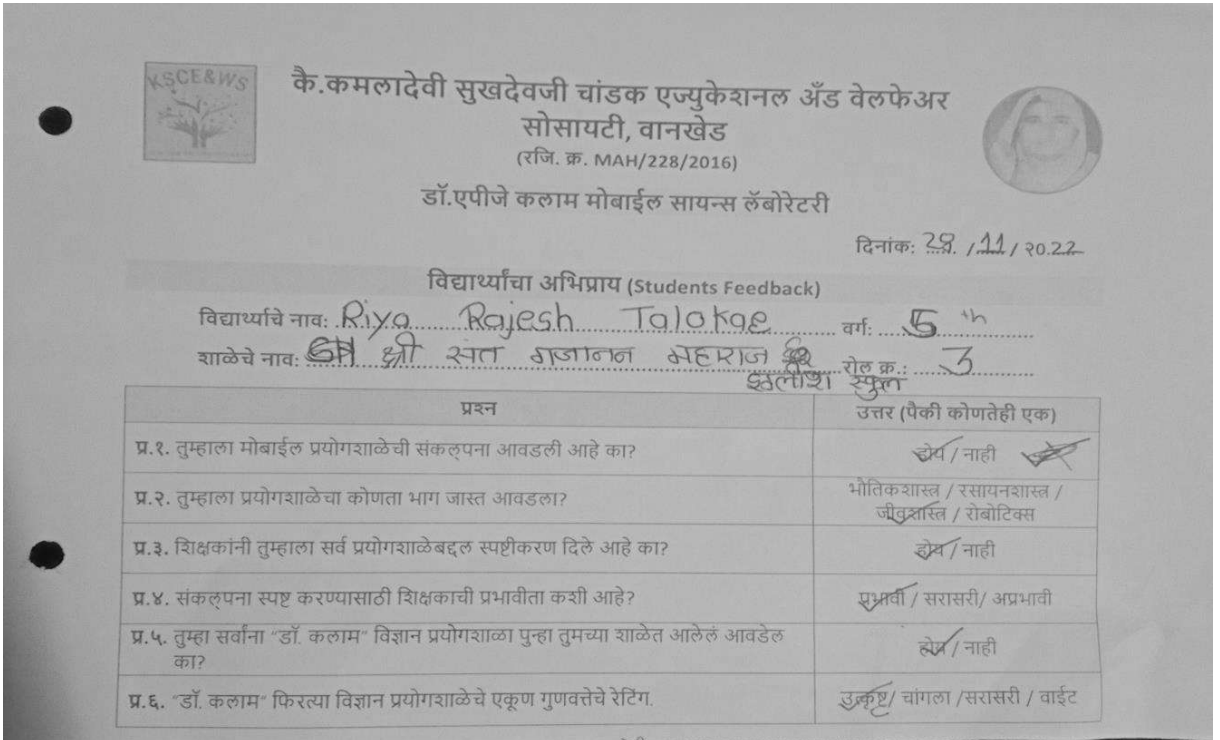 KSCE&WS
कै.कमलादेवी सुखदेवजी चांडक एज्युकेशनल अँड वेलफेअर
सोसायटी, वानखेड
(रजि. क्र. MAH/228/2016)
डॉ.एपीजे कलाम मोबाईल सायन्स लॅबोरेटरी
दिनांक: 29 / 11 / २०.22
विद्यार्थ्यांचा अभिप्राय (Students Feedback)
विद्यार्थ्याचे नाव: Riya Rajesh Talokae वर्ग: 5 th
शाळेचे नाव: श्री संत गजानन महाराज रोल क्र.: 3
इंग्लीश स्कुल
प्रश्न उत्तर (पैकी कोणतेही एक)
प्र.१. तुम्हाला मोबाईल प्रयोगशाळेची संकल्पना आवडली आहे का? होय / नाही
प्र.२. तुम्हाला प्रयोगशाळेचा कोणता भाग जास्त आवडला? भौतिकशास्त्र / रसायनशास्त्र /
जीवशास्त्र / रोबोटिक्स
प्र.३. शिक्षकांनी तुम्हाला सर्व प्रयोगशाळेबद्दल स्पष्टीकरण दिले आहे का? होय / नाही
प्र.४. संकल्पना स्पष्ट करण्यासाठी शिक्षकाची प्रभावीता कशी आहे? प्रभावी / सरासरी/ अप्रभावी
प्र.५. तुम्हा सर्वांना "डॉ. कलाम" विज्ञान प्रयोगशाळा पुन्हा तुमच्या शाळेत आलेलं आवडेल
का? होय / नाही
प्र.६. "डॉ. कलाम" फिरत्या विज्ञान प्रयोगशाळेचे एकूण गुणवत्तेचे रेटिंग. उत्कृष्ट/ चांगला /सरासरी / वाईट